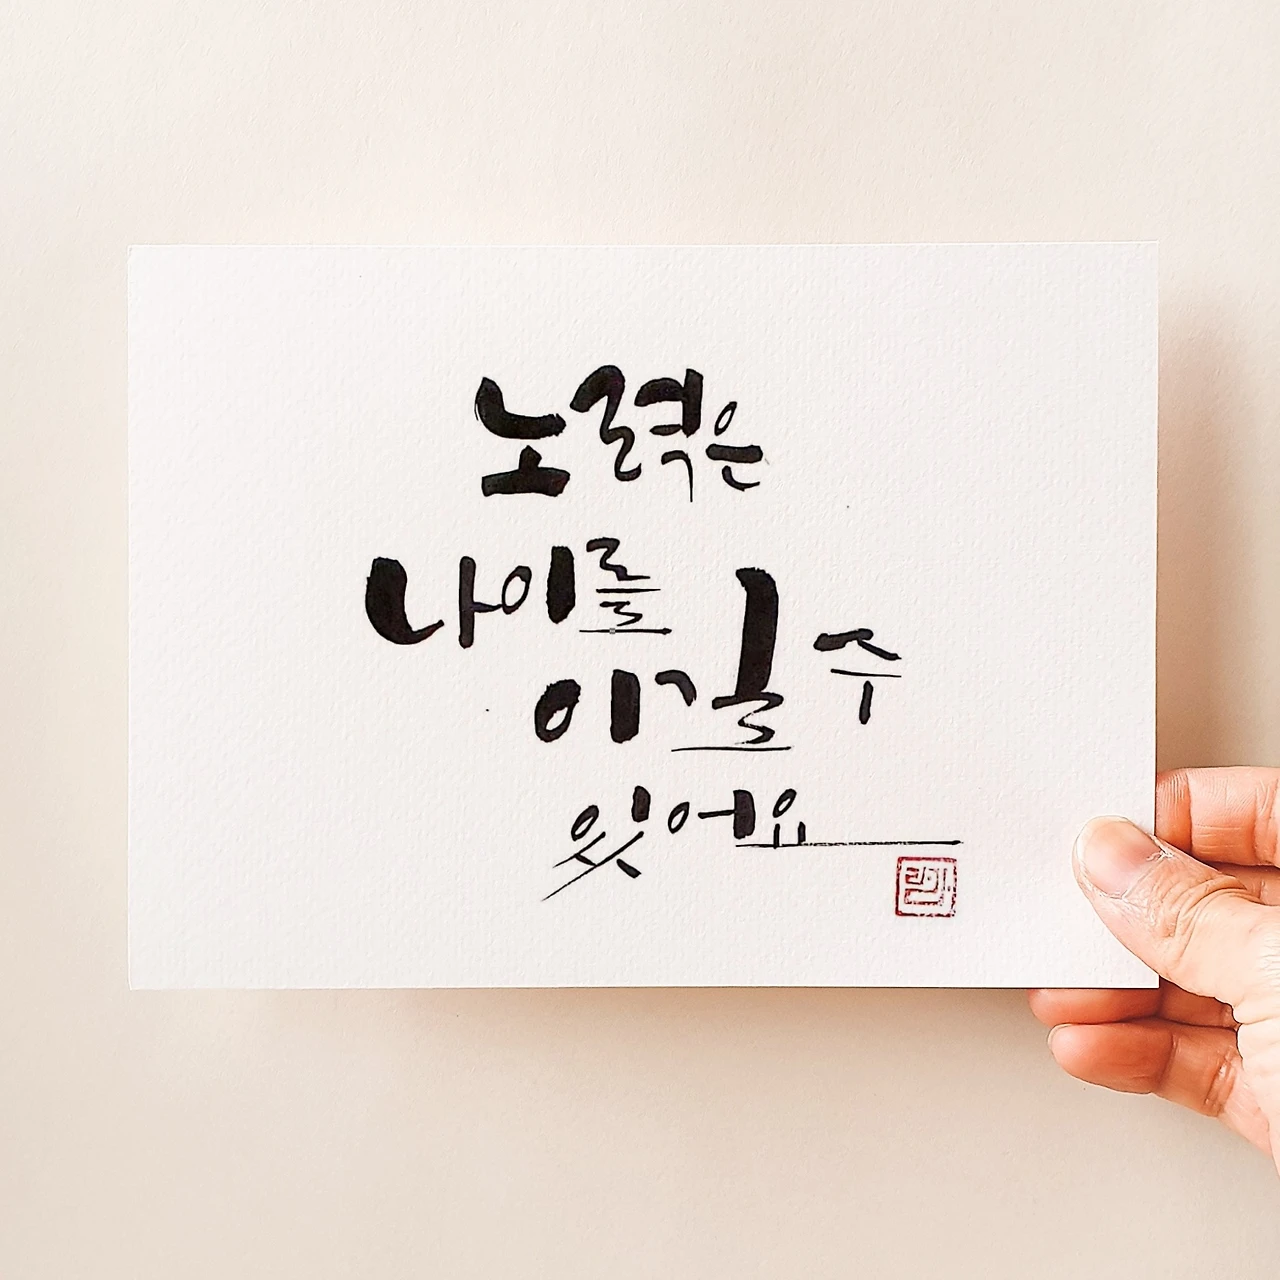 노력은
나이를
이길 수
있어요